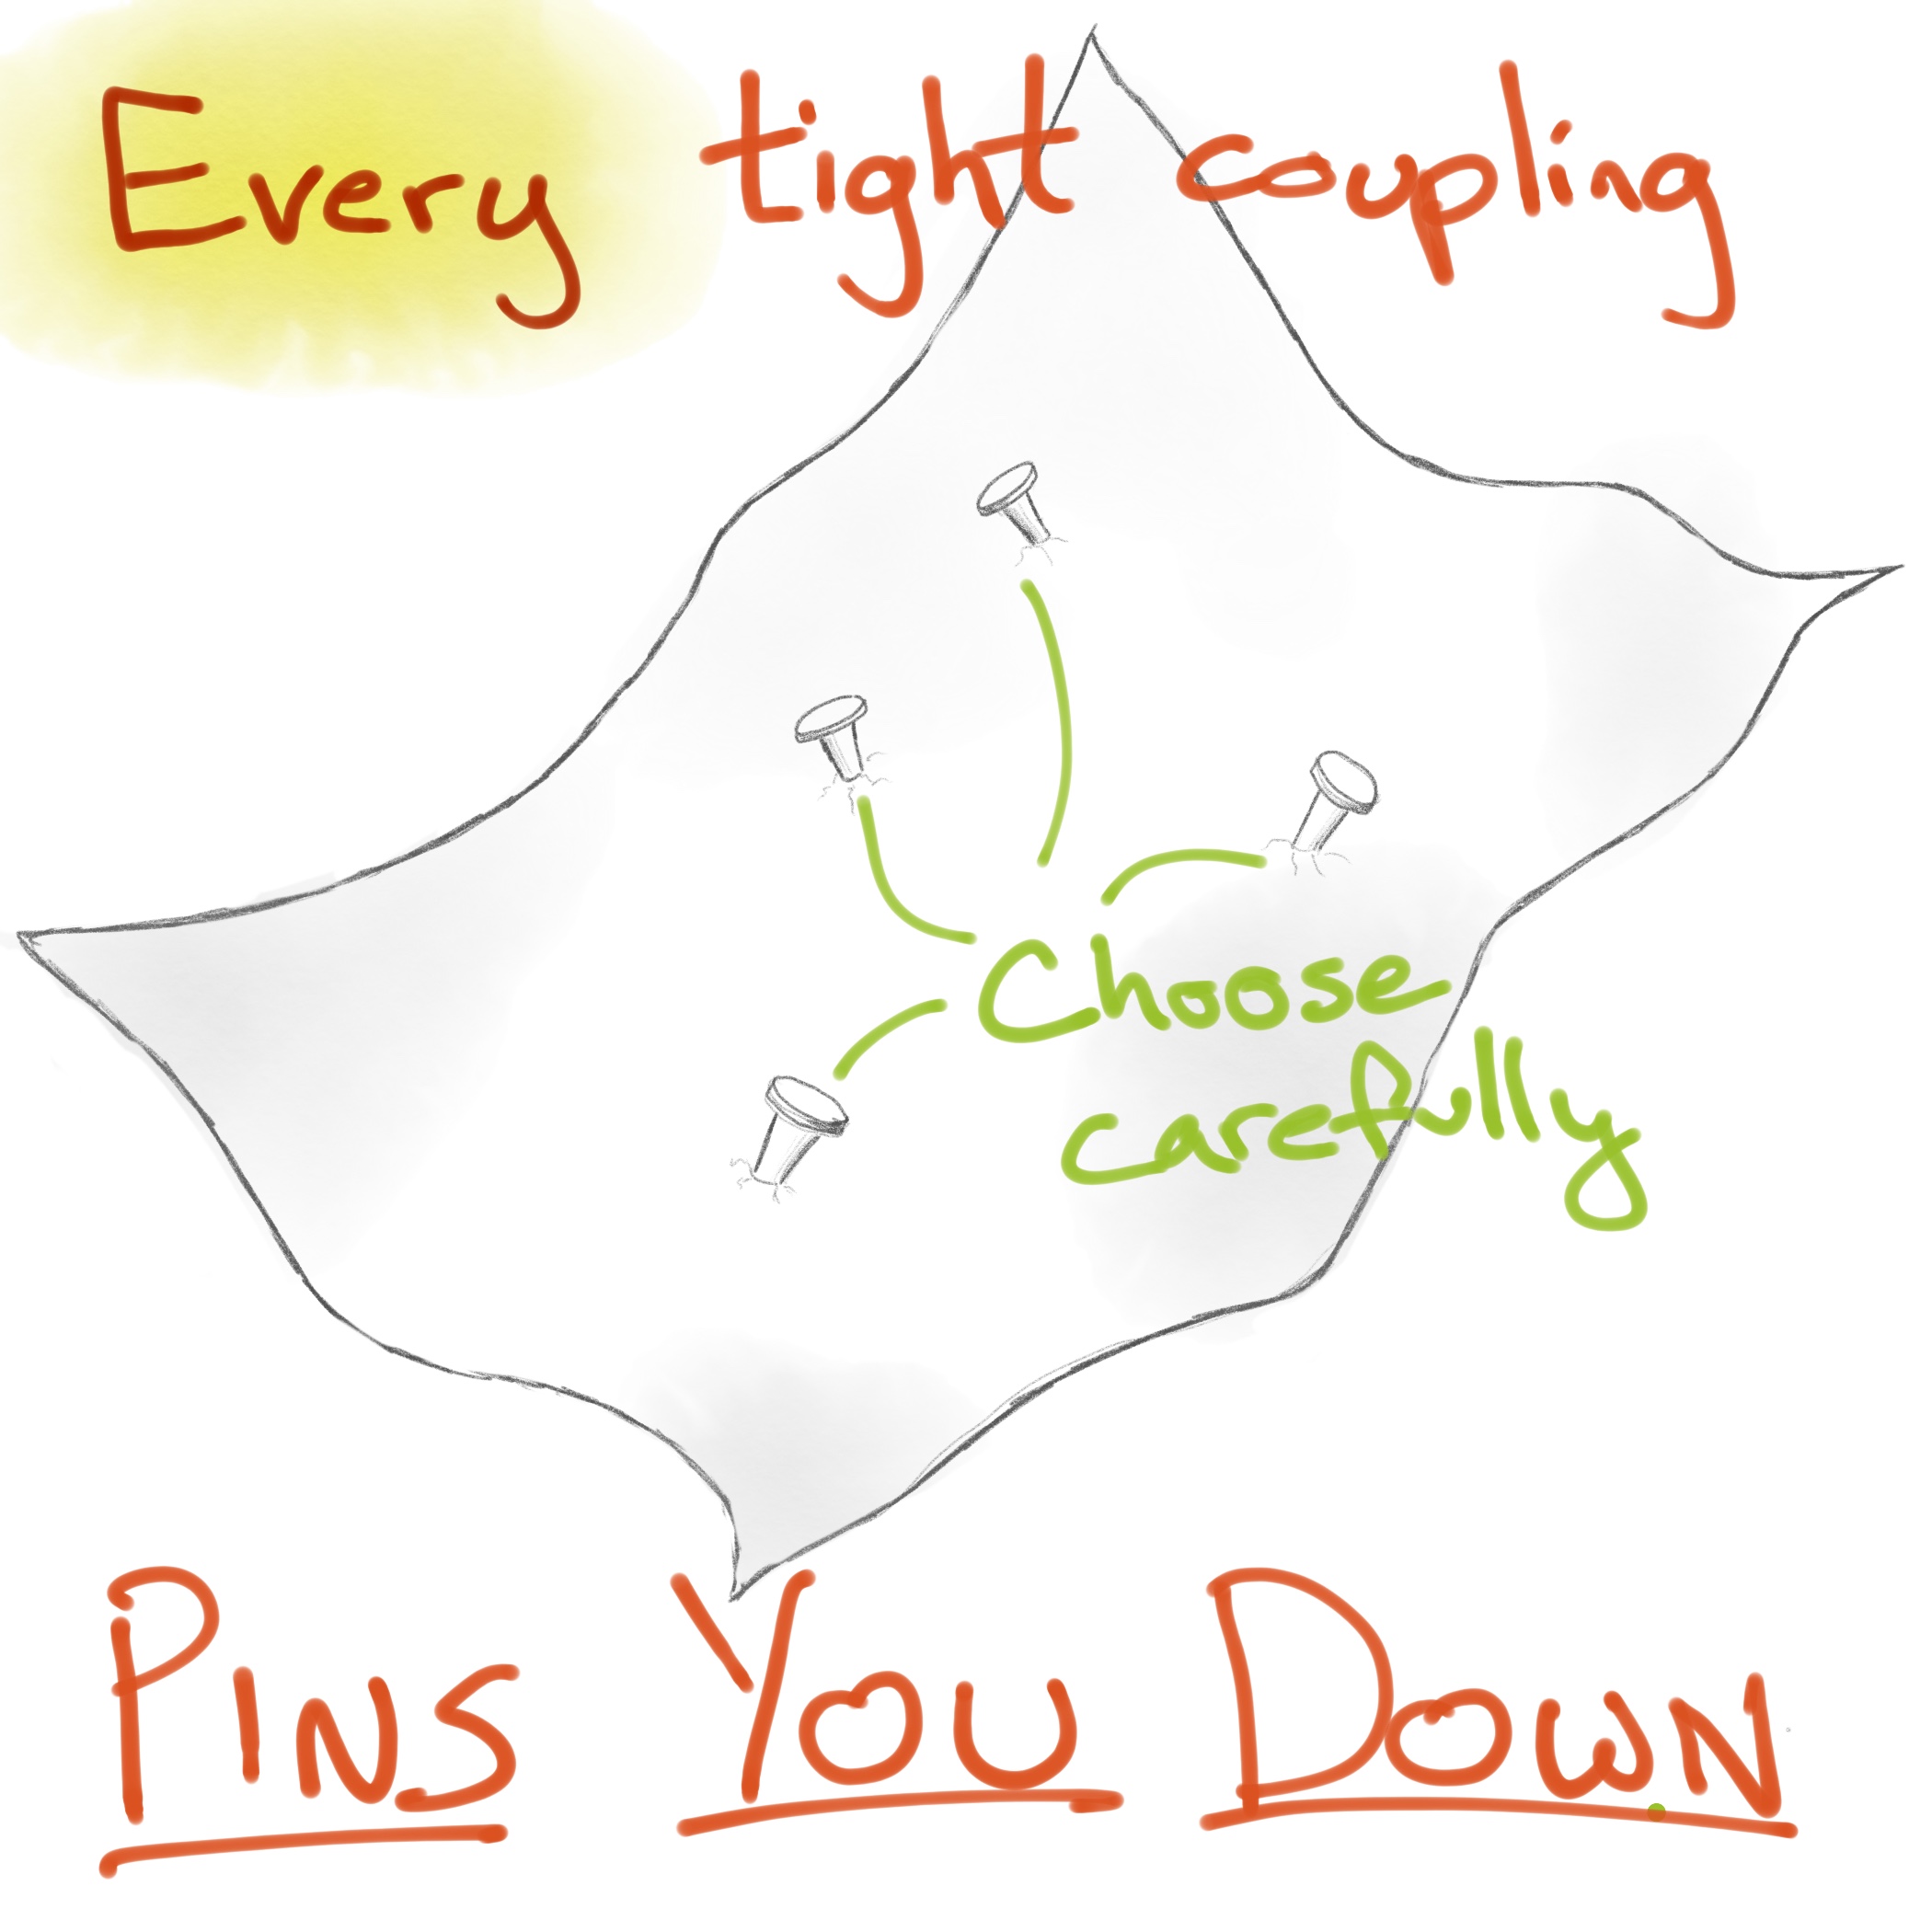 Every tight coupling
Choose
carefully
PINS YOU DOWN